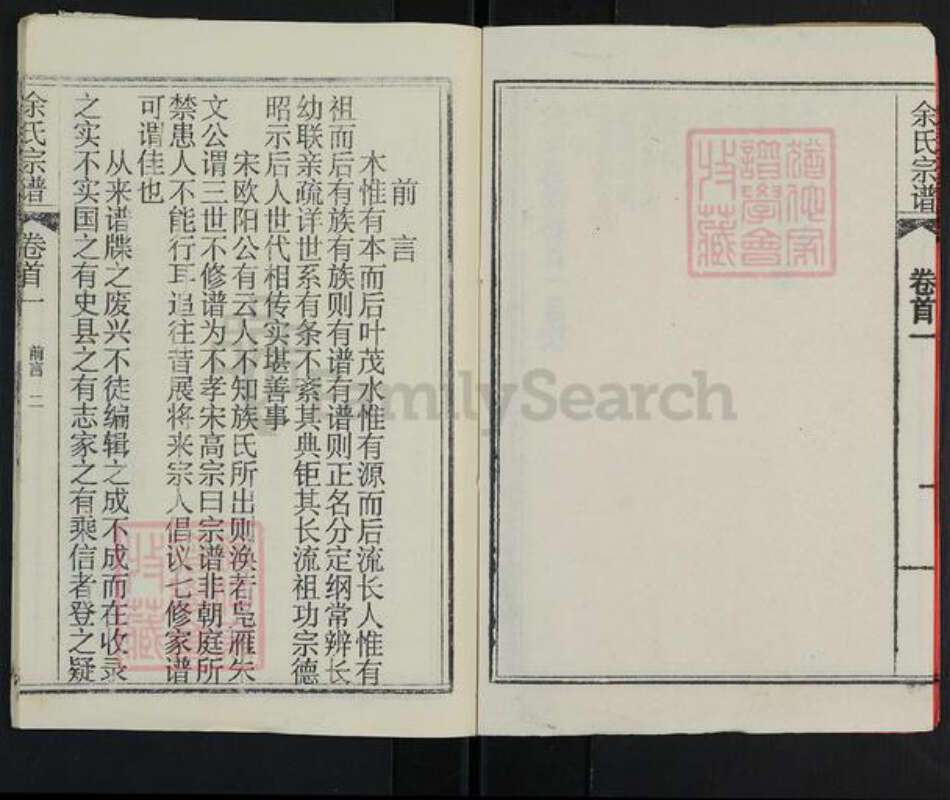 余氏宗谱
卷首一
前言
木惟有本而后叶茂水惟有源而后流长人惟有
祖而后有族有族则有谱有谱则正名分定纲常辨长
幼联亲疏详世系有条不紊其典钜其长流祖功宗德
昭示后人世代相传实堪善事
宋欧阳公有云人不知族氏所出则涣若凫雁朱
文公谓三世不修谱为不孝宋高宗曰宗谱非朝庭所
禁患人不能行耳追往昔展将来宗人倡议七修家谱
可谓佳也
从来谱牒之废兴不徒编辑之成不成而在收录
之实不实国之有史县之有志家之有乘信者登之疑
余氏宗谱
卷首一
前言
二
FamilySearch